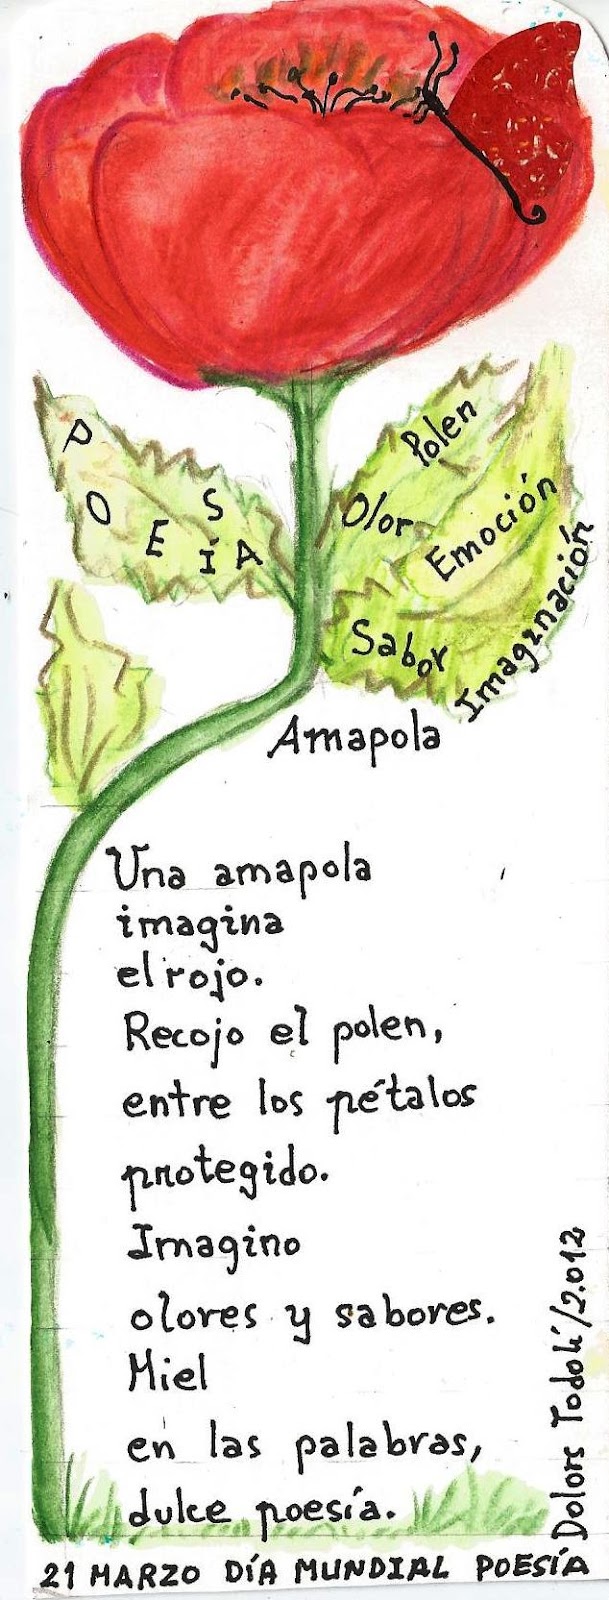 POESÍA
Polen
Olor
Emoción
Sabor
Imaginación
Amapola
Una amapola
imagina
el rojo.
Recojo el polen,
entre los pétalos
protegido.
Imagino
olores y sabores.
Miel
en las palabras,
dulce poesía.
Dolors Todolí/2.012
21 MARZO DÍA MUNDIAL POESÍA